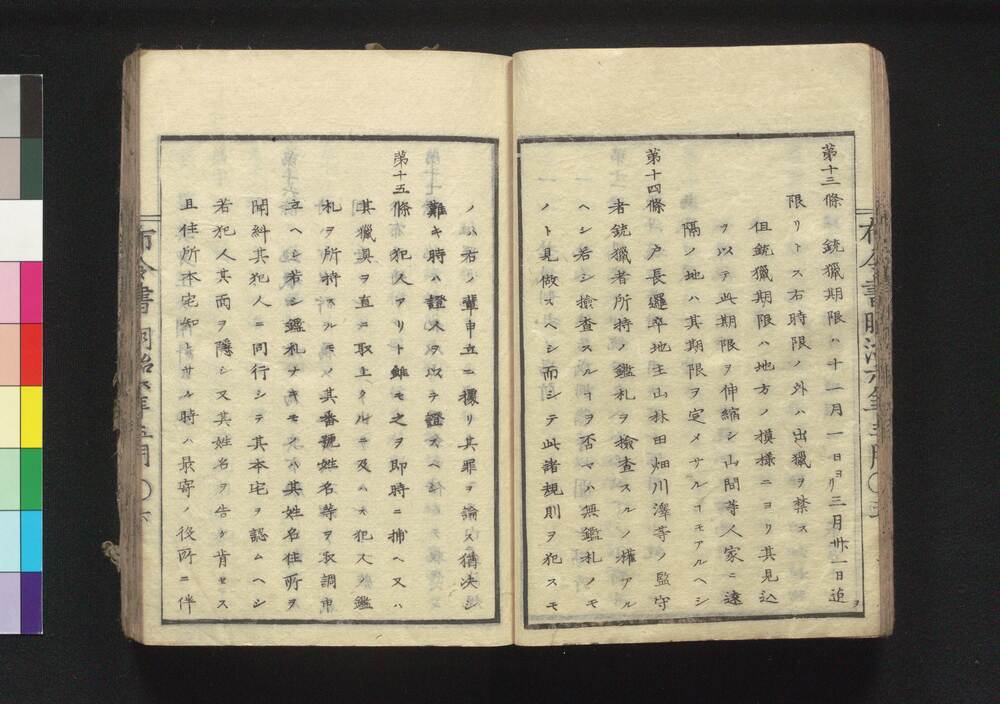 第十三條 銃獵期限ハ十一月一日ヨリ三月卅一日迄ヲ
限リトス右時限ノ外ハ出獵ヲ禁ス
但銃獵期限ハ地方ノ摸樣ニヨリ其見込
ヲ以テ此期限ヲ伸縮シ山間等人家ニ遠
隔ノ地ハ其期限ヲ定メサルヿモアルヘシ
第十四條 戸長邏卒地主山林田畑川澤等ノ監守
者銃獵者所持ノ鑑札ヲ撿査スルノ權アル
ヘシ若シ撿査スルヿヲ否マハ無鑑札ノモ
ノト見做スヘシ而シテ此諸規則ヲ犯スモ
布令書 明治六年五月
ノハ右ノ輩申立ニ據リ其罪ヲ論ス猶決シ
難キ時ハ證人ヲ以テ證スヘシ
第十五條 犯人アリト雖モ之ヲ即時ニ捕ヘ又ハ
其獵具ヲ直ニ取上クルニ及ハス犯人ノ鑑
札ヲ所持スルモノハ其番號姓名等ヲ取調申
立ヘシ若シ鑑札ナキモノハ其姓名住所ヲ
聞糾其犯人ニ同行シテ其本宅ヲ認ムヘシ
若犯人其面ヲ隱シ又其姓名ヲ告ケ肯セス
且住所本宅知レサル時ハ最寄ノ役所ニ伴
布令書 明治六年五月